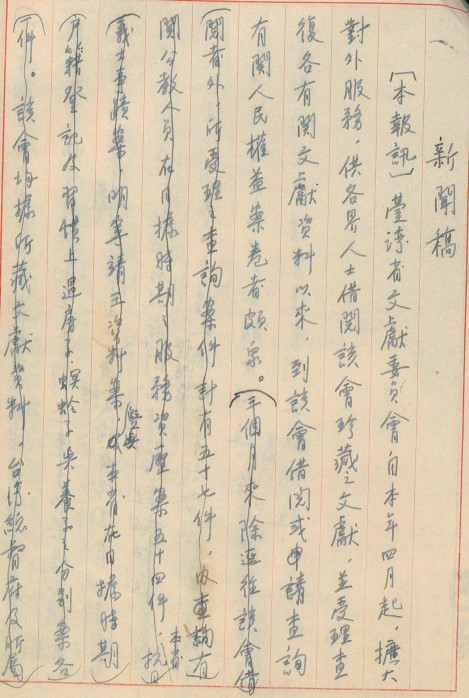 新聞稿
［本報訊］臺灣省文獻委員會自本年四月起，擴大
對外服務，供各界人士借閱該會珍藏之文獻，並受理查
復各有關文獻資料以來，到該會借閱或申請查詢
有關人民權益案卷者頗衆。（三個月來除逕往該會借
閱者外，所受理之查詢案件計有五十七件，內查詢有
關公教人員在日據時期之服務資歷案五十四件，抗日
義士事蹟案，明寧靖王資料案，以及本省在日據時期
戶籍登記及習慣上過房子、螟蛉子與養子之分別案各
一件。該會均據所藏文獻資料，台灣總督府及所屬